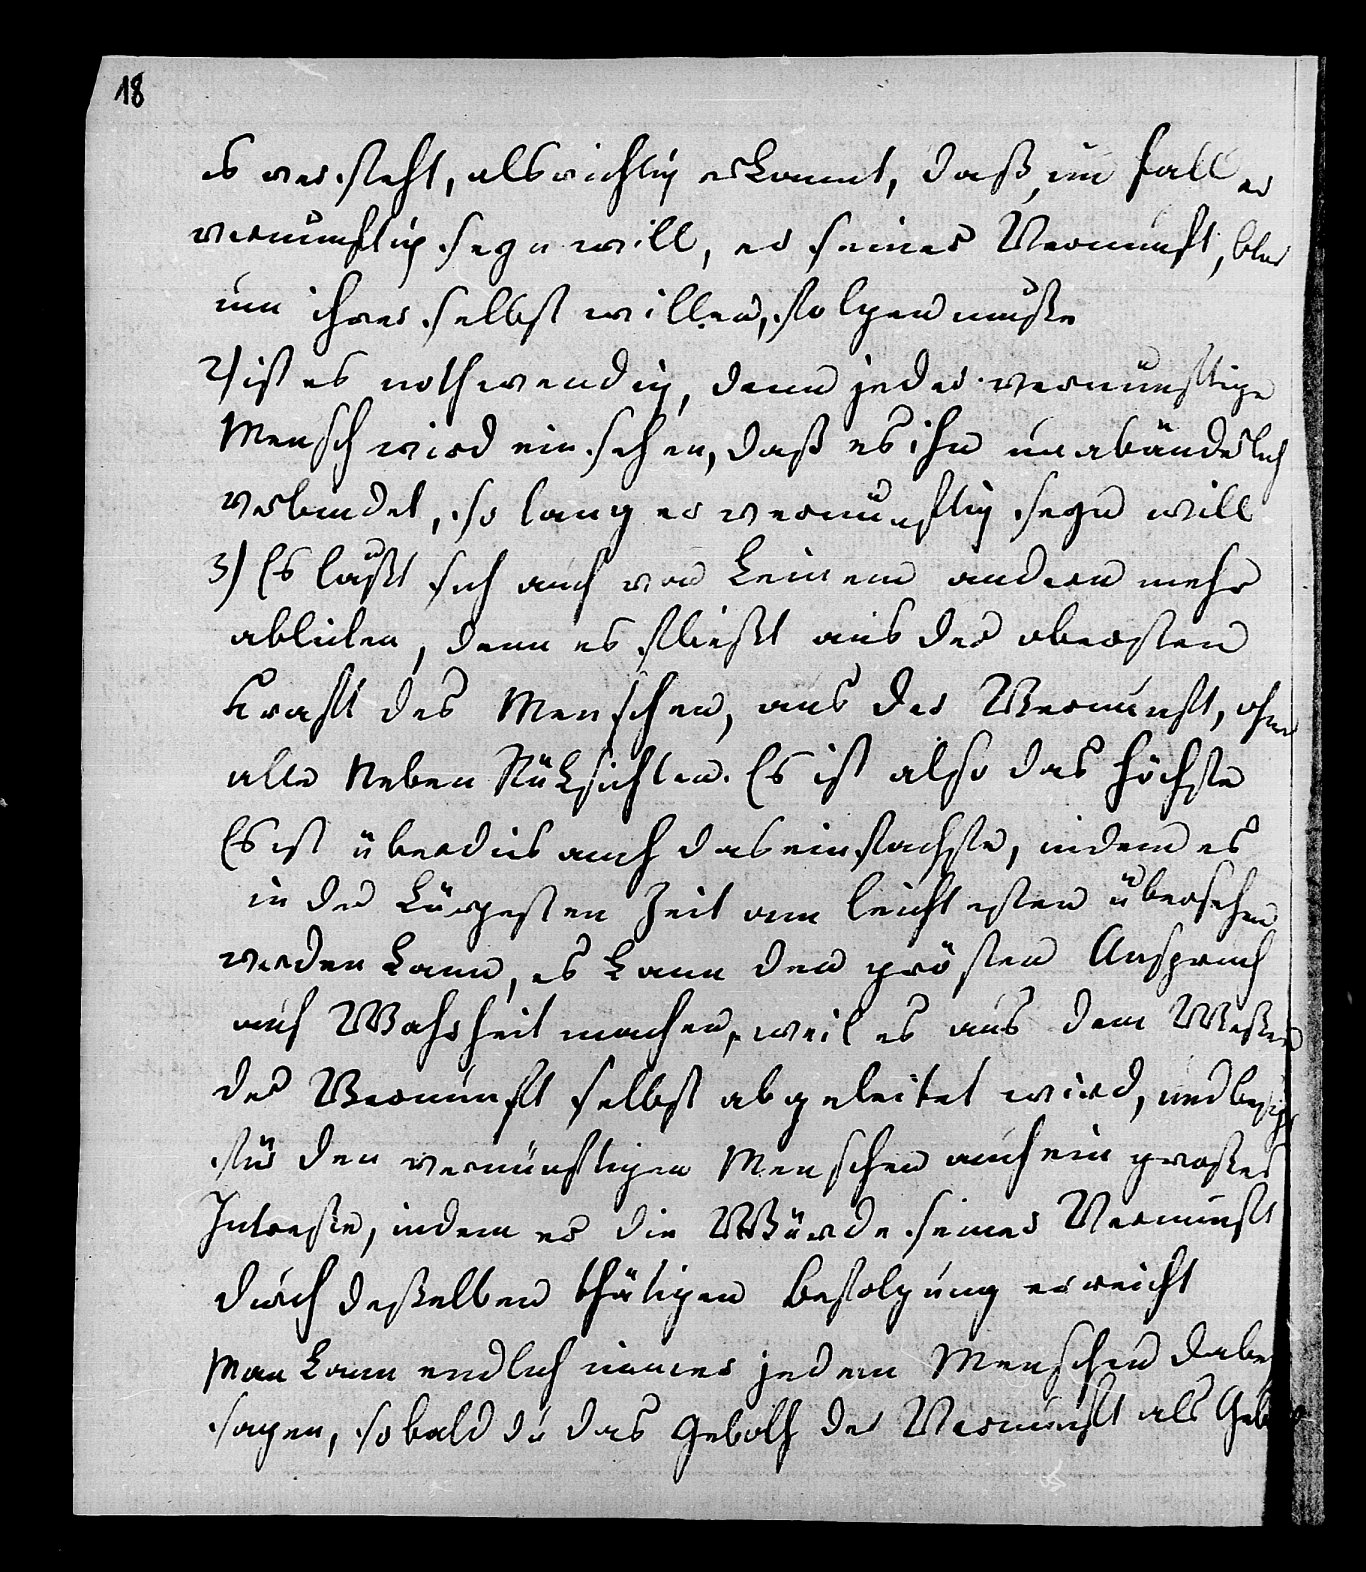 18
es versteht, als richtig erkannt, daß, im fall er
vernünftig seyn will, er seiner Vernunft, blos
um ihrer selbst willen, folgen müße
2) ist es nothwendig, denn jeder vernünftige
Mensch wird einsehen, daß es ihn unabänderlich
verbindet, so lang er vernünftig seyn will
3) Es läßt sich auch von keinem andern mehr
ableiten, denn es fließt aus der obersten
Kraft des Menschen, aus der Vernunft, ohne
alle Neben Rüksichten. Es ist also das höchste
Es ist überdies auch das einfachste, indem es
in der kürzesten Zeit am leichtesten übersehen
werden kann, es kann den grösten Anspruch
auf Wahrheit machen, weil es aus dem Weßen
der Vernunft selbst abgeleitet wird, und besizt
für den vernünftigen Menschen auch ein großes
Intreße, indem er die Würde seiner Vernunft
durch deßelben thätigen Befolgung erreicht
Man kann endlich immer jedem Menschen dabey
sagen, sobald du das Geboth der Vernunft als